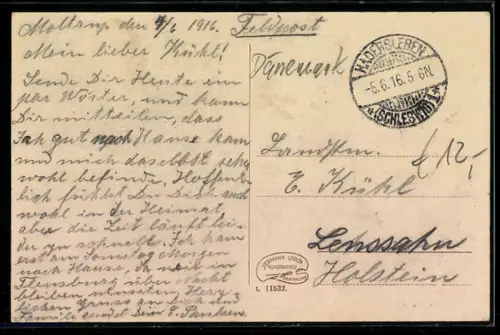 Moltrup den 4/6 1916.
Feldpost
Mein lieber Kühl!
Sende Dir Heute ein
par Wörter, und kann
Dir mitteilen, dass
Ich gut nach Hause kam
und mich daselbst sehr
wohl befinde, Hoffent-
lich fühlst Du Dich auch
wohl in der Heimat,
aber die Zeit läuft lei-
der zu schnell. Ich kam
erst am Sonntag Morgen
nach Hause, da wir in
Flensburg über Nacht
bleiben mussten, Herz-
lichen Gruss an Dich und
Familie sendet Dein
Dänemark
HADERSLEBEN
-5.6.16.5-6N.
(SCHLESWIG) 1
Landstm.
E. Kühl
12,-
Lensahn
Holstein
L. 11532.